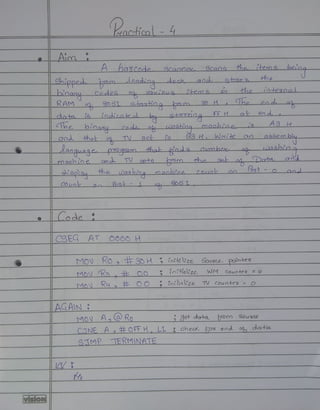 Practical - 4
• Aim :
A barcode scanner scans the items being
shipped from loading dock and stores the
binary codes of various items in the internal
RAM of 8051 starting from 30 H. The end of
data is indicated by storing FFH at end.
The binary code of washing machine is A3 H
and that of TV set is . Write an assembly
language program that finds number of washing
machine and TV sets from the set of Data and
display the washing machine count on Port - 0 and
count on Port - 1 of 8051.
• Code :
CSEG AT 0000 H
MOV R0, #30H ; initialize source pointer
MOV , #00 ; initialize WM counter = 0
MOV R4, #00 ; initialize TV counter = 0
AGAIN :
MOV A, @R0 ; get data from source
CJNE A, #0FFH, L1 ; check for end of data
SJMP TERMINATE
vision